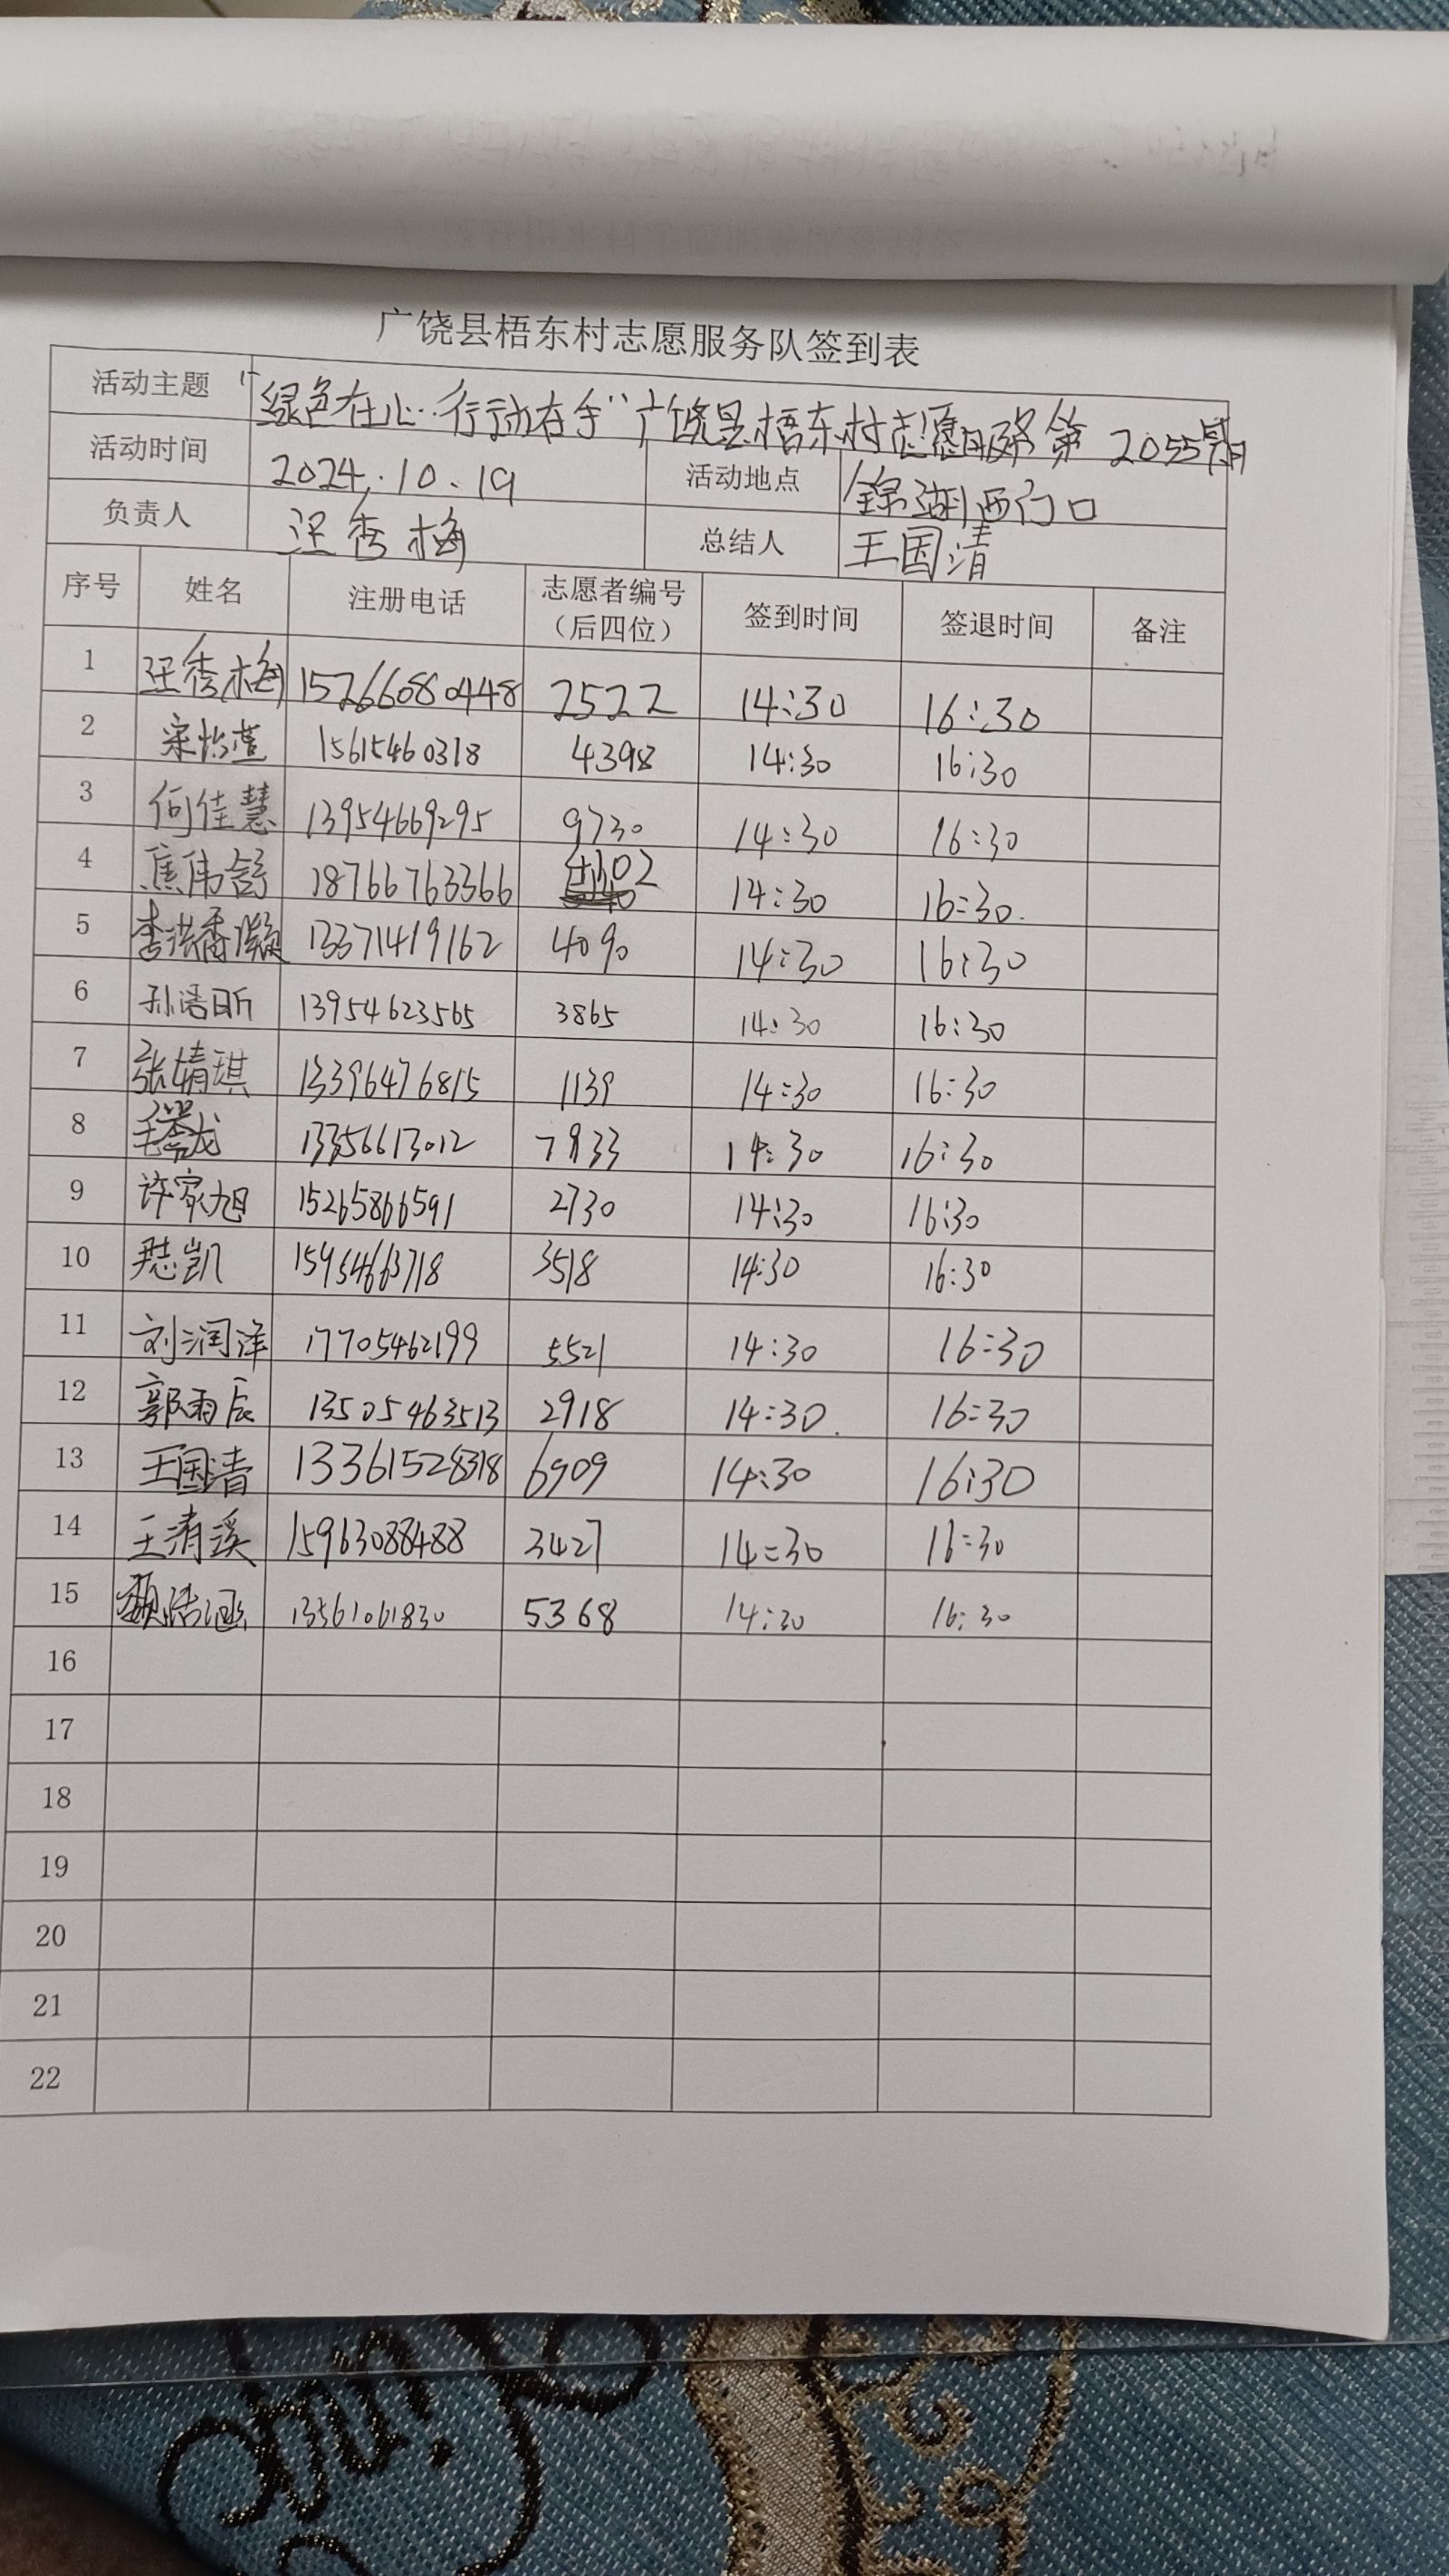 广饶县梧东村志愿服务队签到表
活动主题 "绿色在心…行动在手"广饶县梧东村志愿服务第2055期
活动时间 2024.10.19 活动地点 锦湖西门口
负责人 汪秀梅 总结人 王国清
序号 姓名 注册电话 志愿者编号（后四位） 签到时间 签退时间 备注
1 汪秀梅 15266080448 2522 14:30 16:30
2 宋怡萱 15615460318 4398 14:30 16:30
3 何佳慧 13954669295 9730 14:30 16:30
4 焦伟舒 18766763366 14:30 16:30
5 李洪香灏 13371419162 4090 14:30 16:30
6 孙浩昕 13954623565 3865 14:30 16:30
7 张婧琪 13396476815 1139 14:30 16:30
8 13356613012 7933 14:30 16:30
9 许家旭 15265866591 2730 14:30 16:30
10 尹志凯 15954663718 3518 14:30 16:30
11 刘润泽 17705462199 5521 14:30 16:30
12 郭雨辰 13505463513 2918 14:30 16:30
13 王国清 13361528318 6909 14:30 16:30
14 王清溪 15963088488 3427 14:30 16:30
15 13561061830 5368 14:30 16:30
16
17
18
19
20
21
22